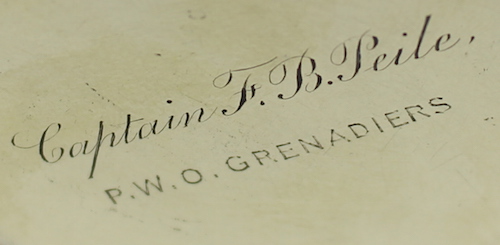 Captain F. B. Peile,
P.W.O. GRENADIERS